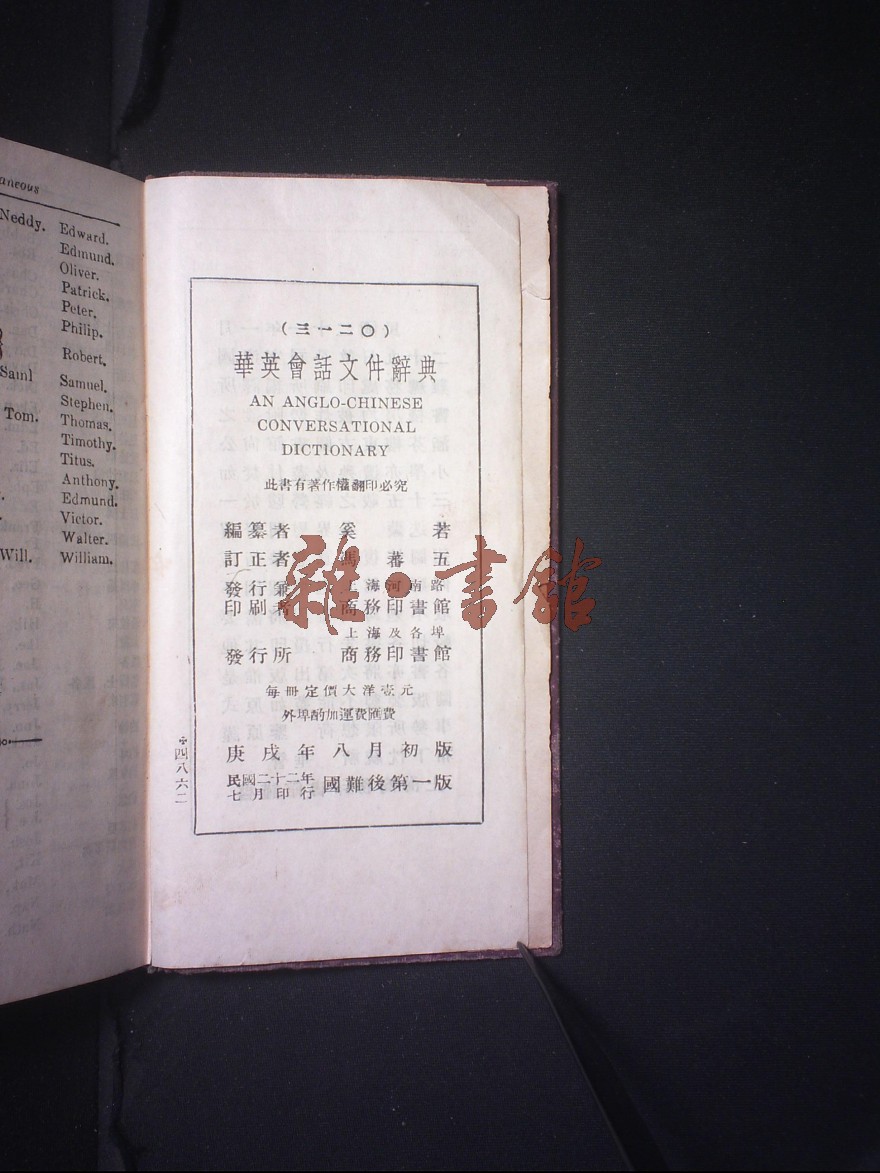 aneous
Neddy. Edward.
Edmund.
Oliver.
Patrick.
Peter.
Philip.
Robert.
Saml Samuel.
Stephen.
Tom. Thomas.
Timothy.
Titus.
Anthony.
Edmund.
Victor.
Walter.
Will. William.
(三一二〇)
華英會話文件辭典
AN ANGLO-CHINESE
CONVERSATIONAL
DICTIONARY
此書有著作權翻印必究
編纂者 奚若
訂正者 蕃五
發行兼 上海河南路
印刷者 商務印書館
上海及各埠
發行所 商務印書館
每冊定價大洋壹元
外埠酌加運費匯費
庚戌年八月初版
民國二十二年
七月印行 國難後第一版
四八六二
雜·書館